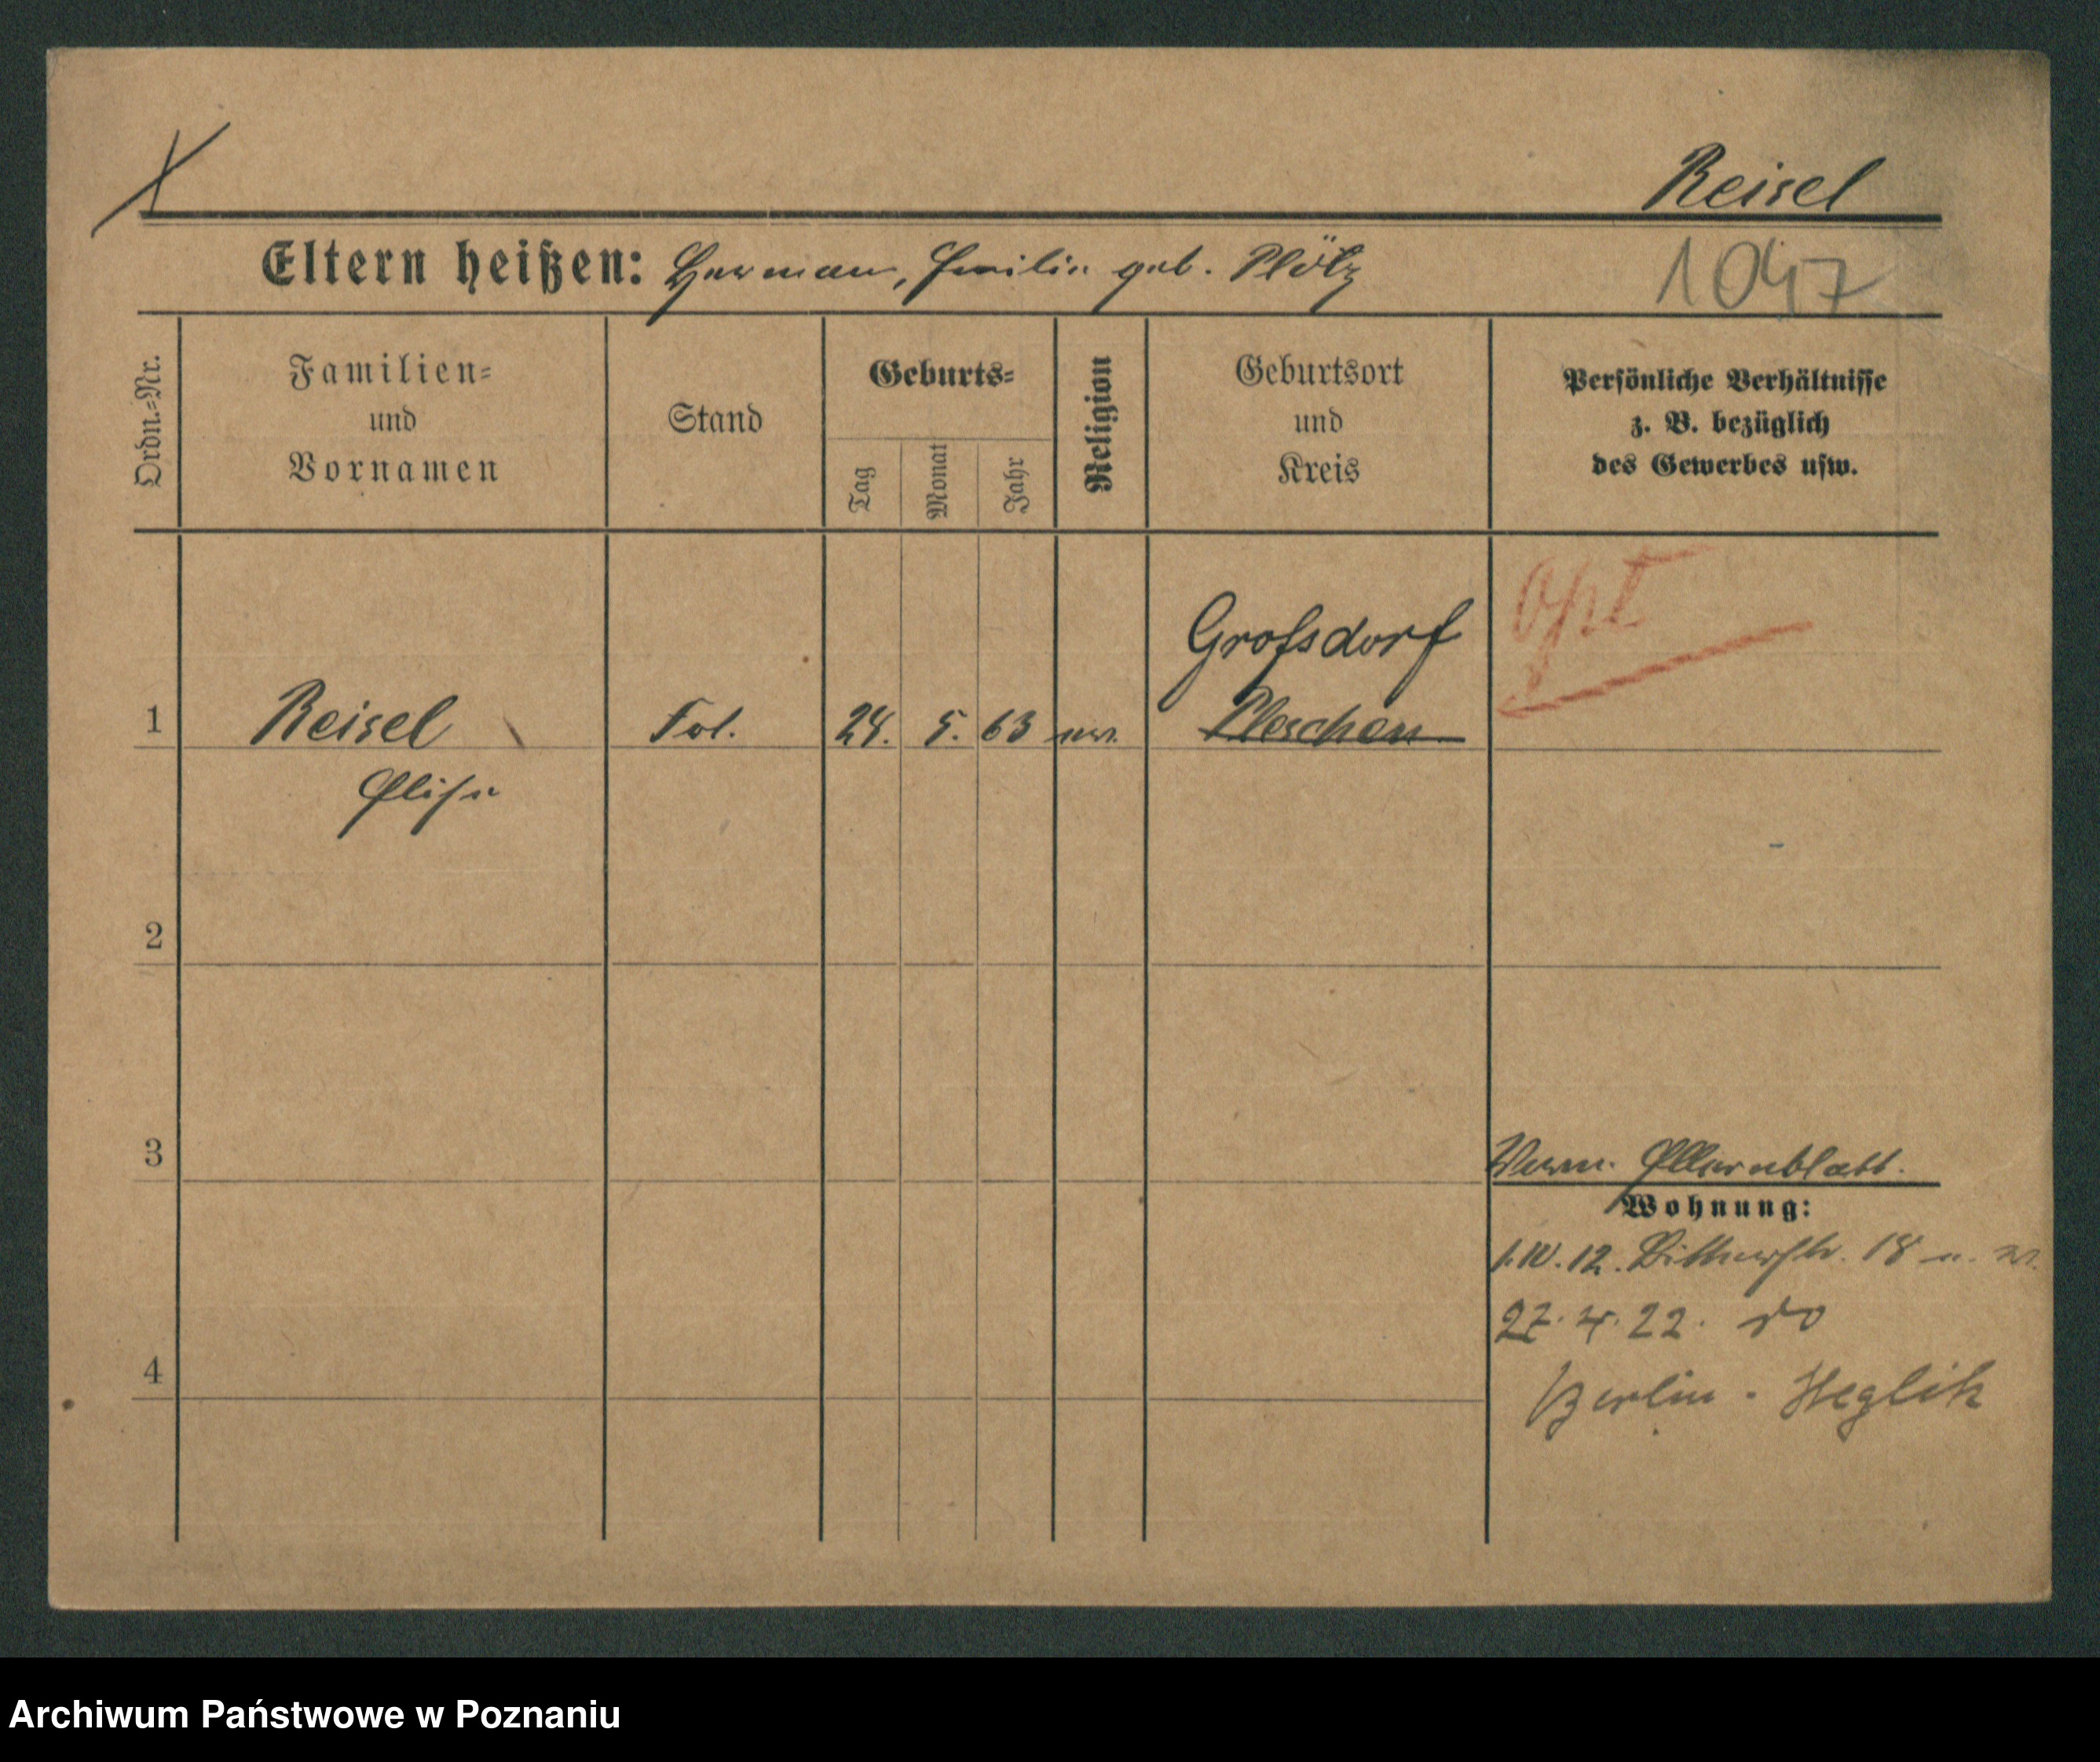 Reisel
Eltern heißen: Herman, Emilie geb. Plötz
1047
Ordn.=Nr.
Familien=
und
Vornamen
Stand
Geburts=
Tag
Monat
Jahr
Religion
Geburtsort
und
Kreis
Persönliche Verhältnisse
z. B. bezüglich
des Gewerbes usw.
Opt
Grossdorf
1 Reisel Frl. 24. 5. 63 ev. Pleschen
Elise
2
3
Verm. Elternblatt.
Wohnung:
1.10.12. 18
27. 4. 22. do
4
Berlin - Steglitz
Archiwum Państwowe w Poznaniu